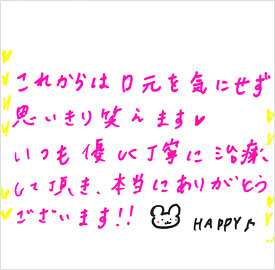 これからは口元を気にせず
思いきり笑えます♥
いつも優しく丁寧に治療、
して頂き、本当にありがとう
ございます!! HAPPY♪